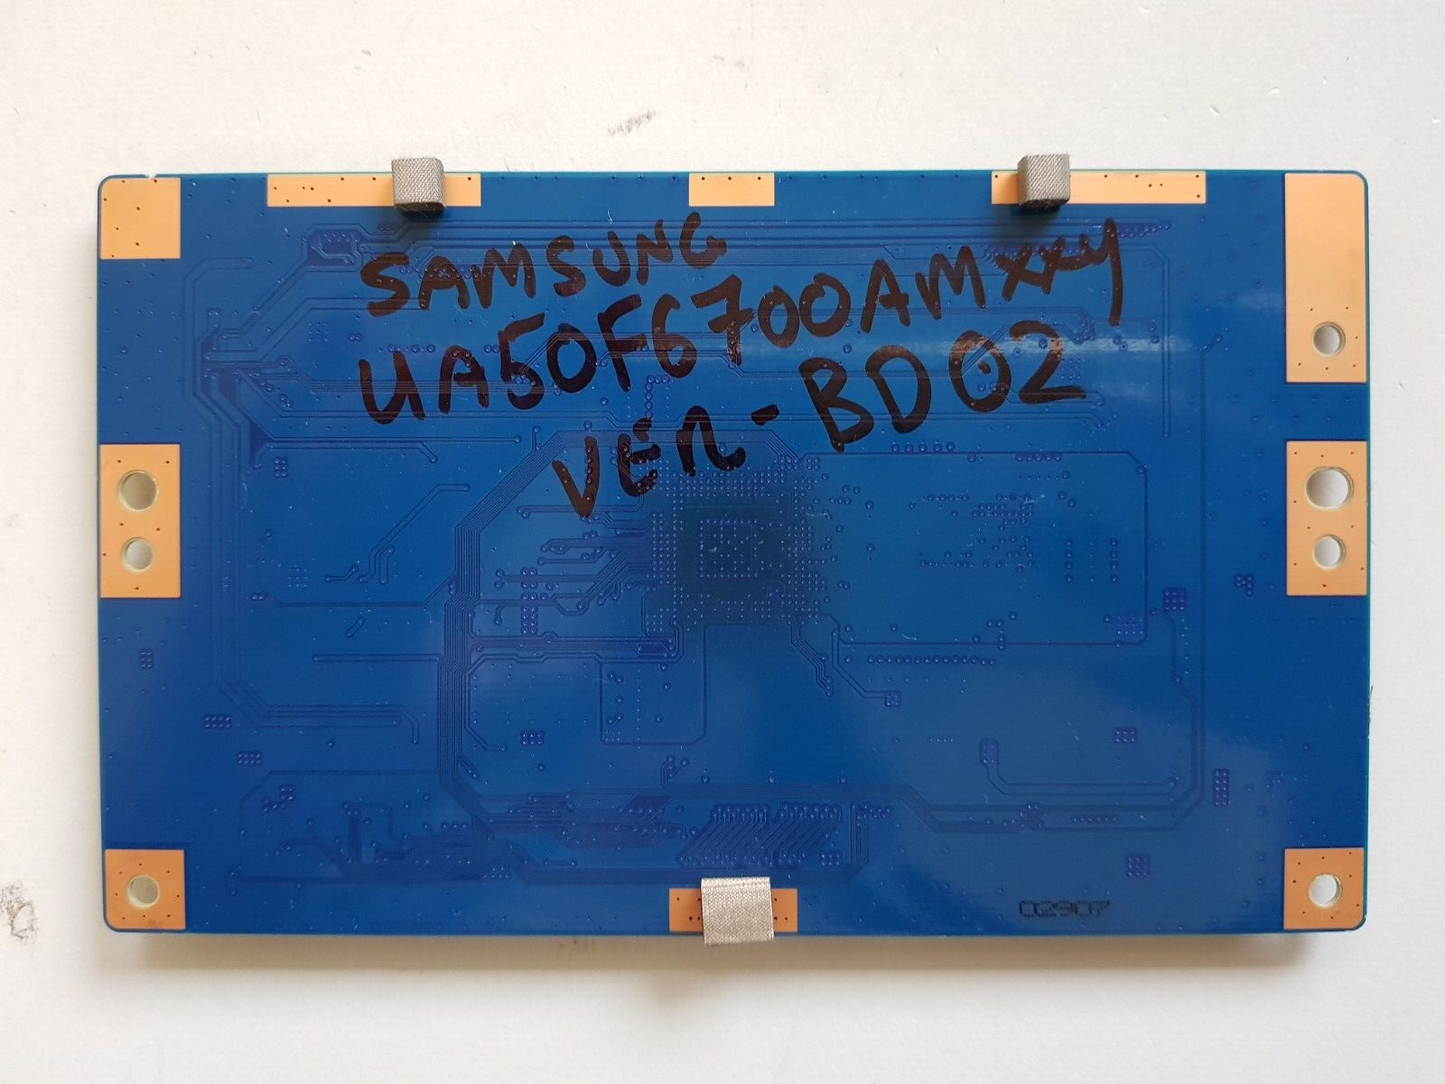 SAMSUNG
UA50F6700AMXXY
VER-BD02
02907